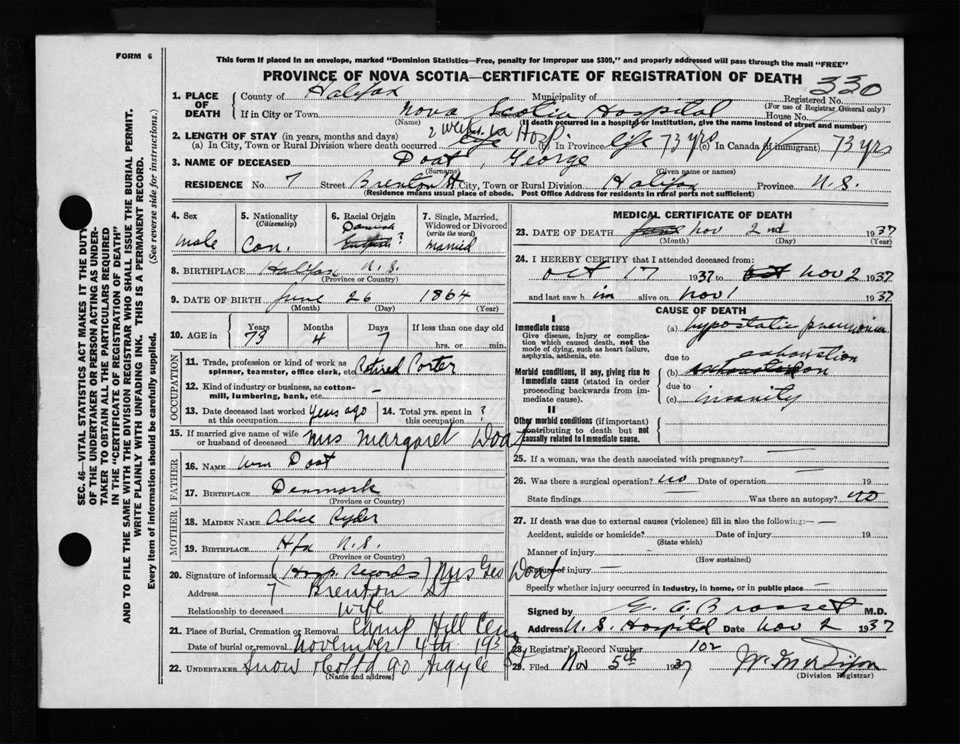 FORM 6
This form if placed in an envelope, marked "Dominion Statistics—Free, penalty for improper use $300," and properly addressed will pass through the mail "FREE"
PROVINCE OF NOVA SCOTIA—CERTIFICATE OF REGISTRATION OF DEATH
330
1. PLACE OF DEATH
County of Halifax Municipality of Registered No.
(For use of Registrar General only)
If in City or Town Nova Scotia Hospital House No.
(Name) (If death occurred in a hospital or institution, give the name instead of street and number)
2. LENGTH OF STAY (in years, months and days) 2 weeks in Hosp.
(a) In City, Town or Rural Division where death occurred life (b) In Province life 73 yrs (c) In Canada (if immigrant) 73 yrs
3. NAME OF DECEASED Doat, George
(Surname) (Given name or names)
RESIDENCE No. 7 Street Brenton St City, Town or Rural Division Halifax Province N.S.
(Residence means usual place of abode. Post Office Address for residents in rural parts not sufficient)
4. Sex male
5. Nationality (Citizenship) Can.
6. Racial Origin Danish ?
7. Single, Married, Widowed or Divorced (write the word) married
8. BIRTHPLACE Halifax N.S.
(Province or Country)
9. DATE OF BIRTH June 26 1864
(Month) (Day) (Year)
10. AGE in Years 73 Months 4 Days 7 If less than one day old hrs. or min.
OCCUPATION
11. Trade, profession or kind of work as spinner, teamster, office clerk, etc. Retired Porter
12. Kind of industry or business, as cotton-mill, lumbering, bank, etc. —
13. Date deceased last worked at this occupation years ago
14. Total yrs. spent in this occupation ?
15. If married give name of wife or husband of deceased Mrs Margaret Doat
FATHER
16. NAME Wm Doat
17. BIRTHPLACE Denmark
(Province or Country)
MOTHER
18. MAIDEN NAME Alice Ryder
19. BIRTHPLACE Hfx N.S.
(Province or Country)
20. Signature of informant (Hosp records) Mrs Geo Doat
Address 7 Brenton St
Relationship to deceased wife
21. Place of Burial, Cremation or Removal Camp Hill Cem
Date of burial or removal November 4th 193
22. UNDERTAKER Snow & Co Ltd 90 Argyle St
(Name and address)
MEDICAL CERTIFICATE OF DEATH
23. DATE OF DEATH Nov 2nd 1937
(Month) (Day) (Year)
24. I HEREBY CERTIFY that I attended deceased from:
Oct 17 1937 to Nov 2 1937
and last saw him alive on Nov 1 1937
CAUSE OF DEATH
I
Immediate cause
Give disease, injury or complication which caused death, not the mode of dying, such as heart failure, asphyxia, asthenia, etc.
(a) hypostatic pneumonia
due to
Morbid conditions, if any, giving rise to Immediate cause (stated in order proceeding backwards from immediate cause).
(b) exhaustion
due to
(c) insanity
II
Other morbid conditions (if important) contributing to death but not causally related to immediate cause.
25. If a woman, was the death associated with pregnancy? —
26. Was there a surgical operation? no Date of operation 19
State findings — Was there an autopsy? no
27. If death was due to external causes (violence) fill in also the following:—
Accident, suicide or homicide? Date of injury 19
(State which)
Manner of injury —
(How sustained)
Nature of injury —
Specify whether injury occurred in Industry, in home, or in public place —
Signed by M.D.
Address N.S. Hospital Date Nov 2 1937
28. Registrar's Record Number 102
29. Filed Nov 5th 1937
(Division Registrar)
SEC. 46—VITAL STATISTICS ACT MAKES IT THE DUTY
OF THE UNDERTAKER OR PERSON ACTING AS UNDER-
TAKER TO OBTAIN ALL THE PARTICULARS REQUIRED
IN THE "CERTIFICATE OF REGISTRATION OF DEATH"
AND TO FILE THE SAME WITH THE DIVISION REGISTRAR WHO SHALL ISSUE THE BURIAL PERMIT.
WRITE PLAINLY WITH UNFADING INK. THIS IS A PERMANENT RECORD.
Every item of information should be carefully supplied. (See reverse side for instructions.)